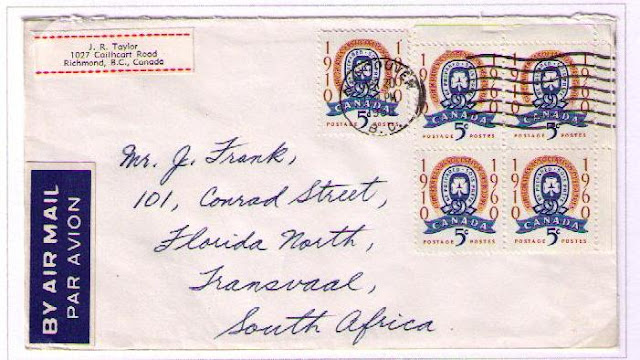 J. R. Taylor
1027 Cailhcart Road
Richmond, B.C., Canada
BY AIR MAIL
PAR AVION
Mr. J. Frank,
101, Conrad Street,
Florida North,
Transvaal,
South Africa.
VANCOUVER
B.C.
1910 1960
CANADA
5¢
POSTAGE POSTES
1910 1960
CANADA
5¢
POSTAGE POSTES
1910 1960
CANADA
5¢
POSTAGE POSTES
1910 1960
CANADA
5¢
POSTAGE POSTES
1910 1960
CANADA
5¢
POSTAGE POSTES